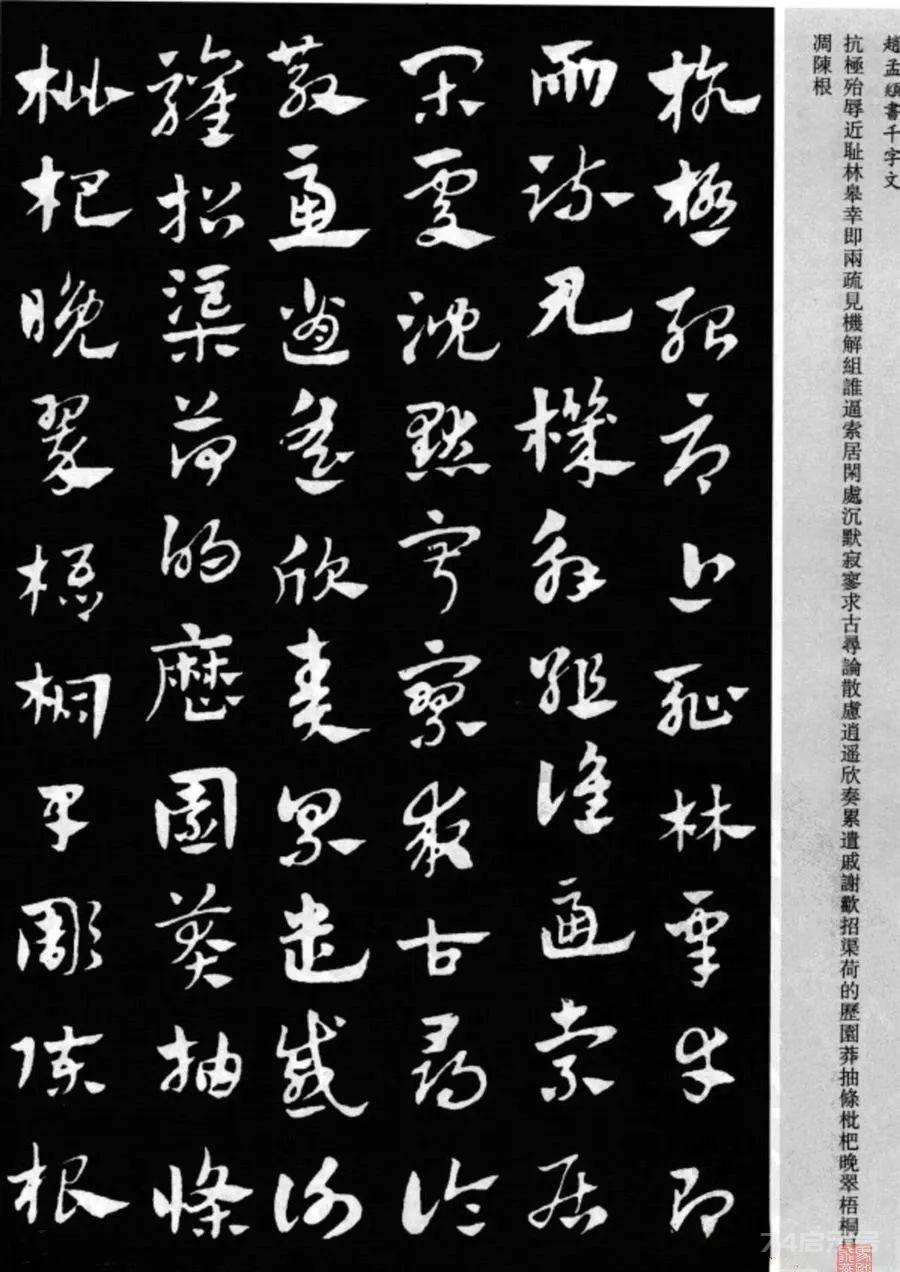 趙孟頫書千字文
抗極殆辱近耻林皋幸即兩疏見機解組誰逼索居閑處沉默寂寥求古尋論散慮逍遥欣奏累遣戚謝歡招渠荷的歷園莽抽條枇杷晚翠梧桐
凋陳根
抗極殆辱近耻林皋幸即
兩疏見機解組誰逼索居
閑處沈默寂寥求古尋論
散慮逍遥欣奏累遣慼謝
歡招渠荷的歷園莽抽條
枇杷晚翠梧桐早彫陳根